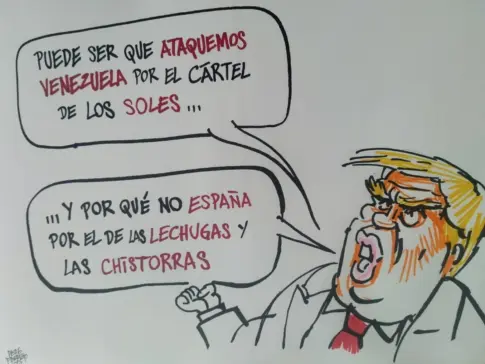 PUEDE SER QUE ATAQUEMOS
VENEZUELA POR EL CÁRTEL
DE LOS SOLES...
...Y POR QUÉ NO ESPAÑA
POR EL DE LAS LECHUGAS Y
LAS CHISTORRAS